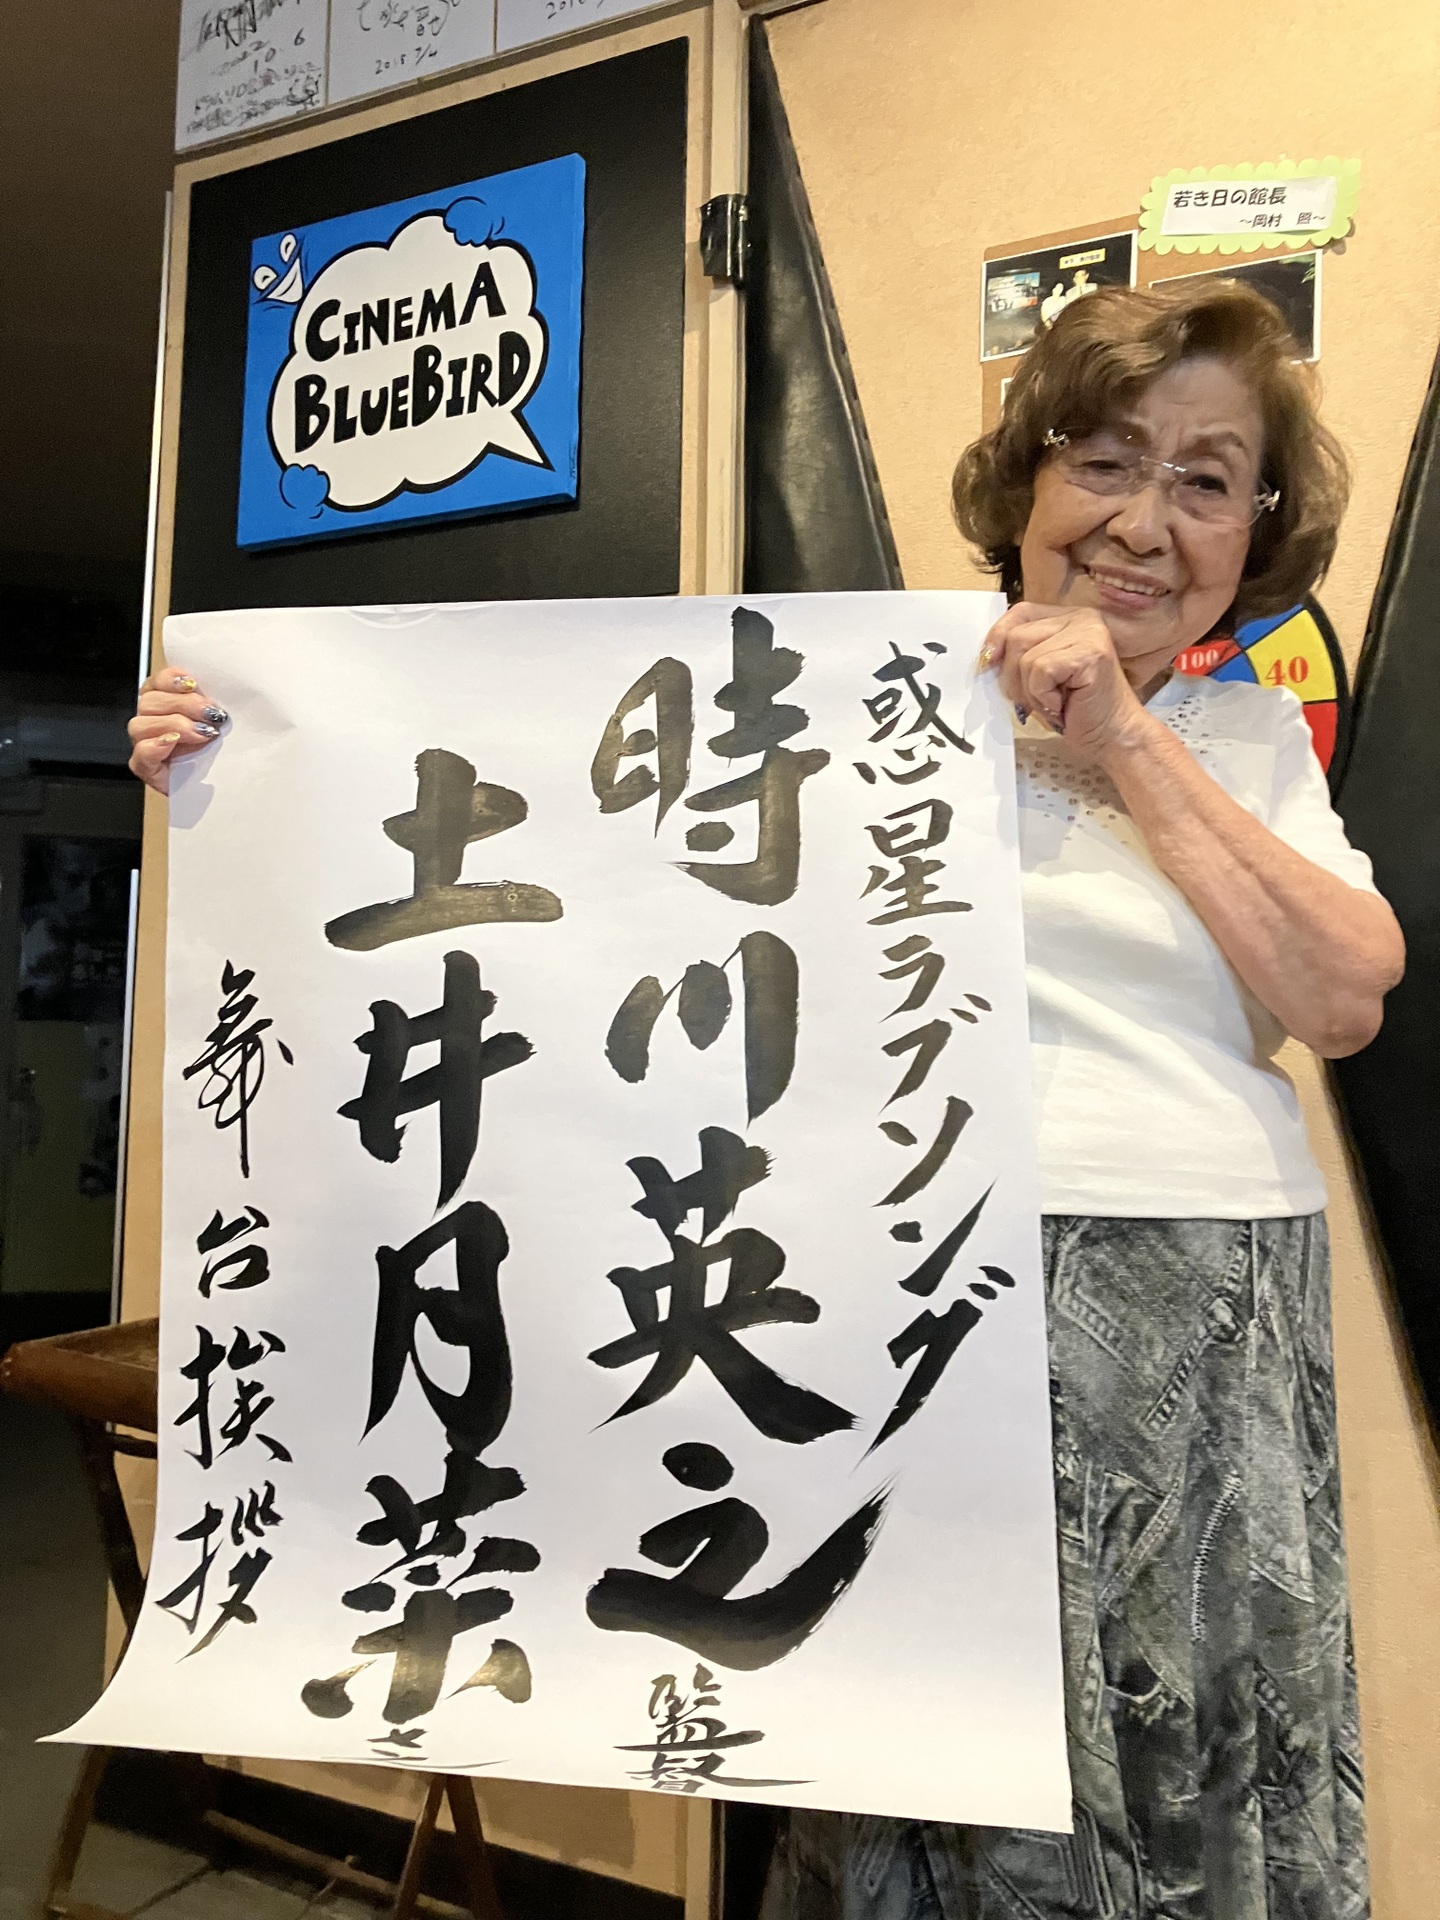 2015 7/4
10.6
CINEMA
BLUEBIRD
若き日の館長
~岡村 照~
100
40
惑星ラブソング
時川英之監督
土井月菜さん
舞台挨拶